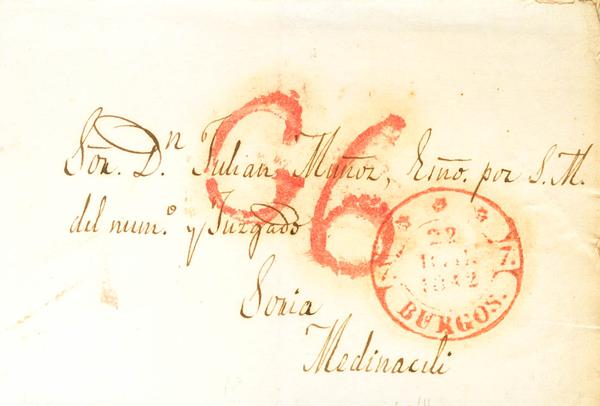 G6
Sor. Dn Julian Muñoz, Esno. por S.M.
del num.o y Juzgado
Soria
Medinaceli
22
1842
BURGOS.